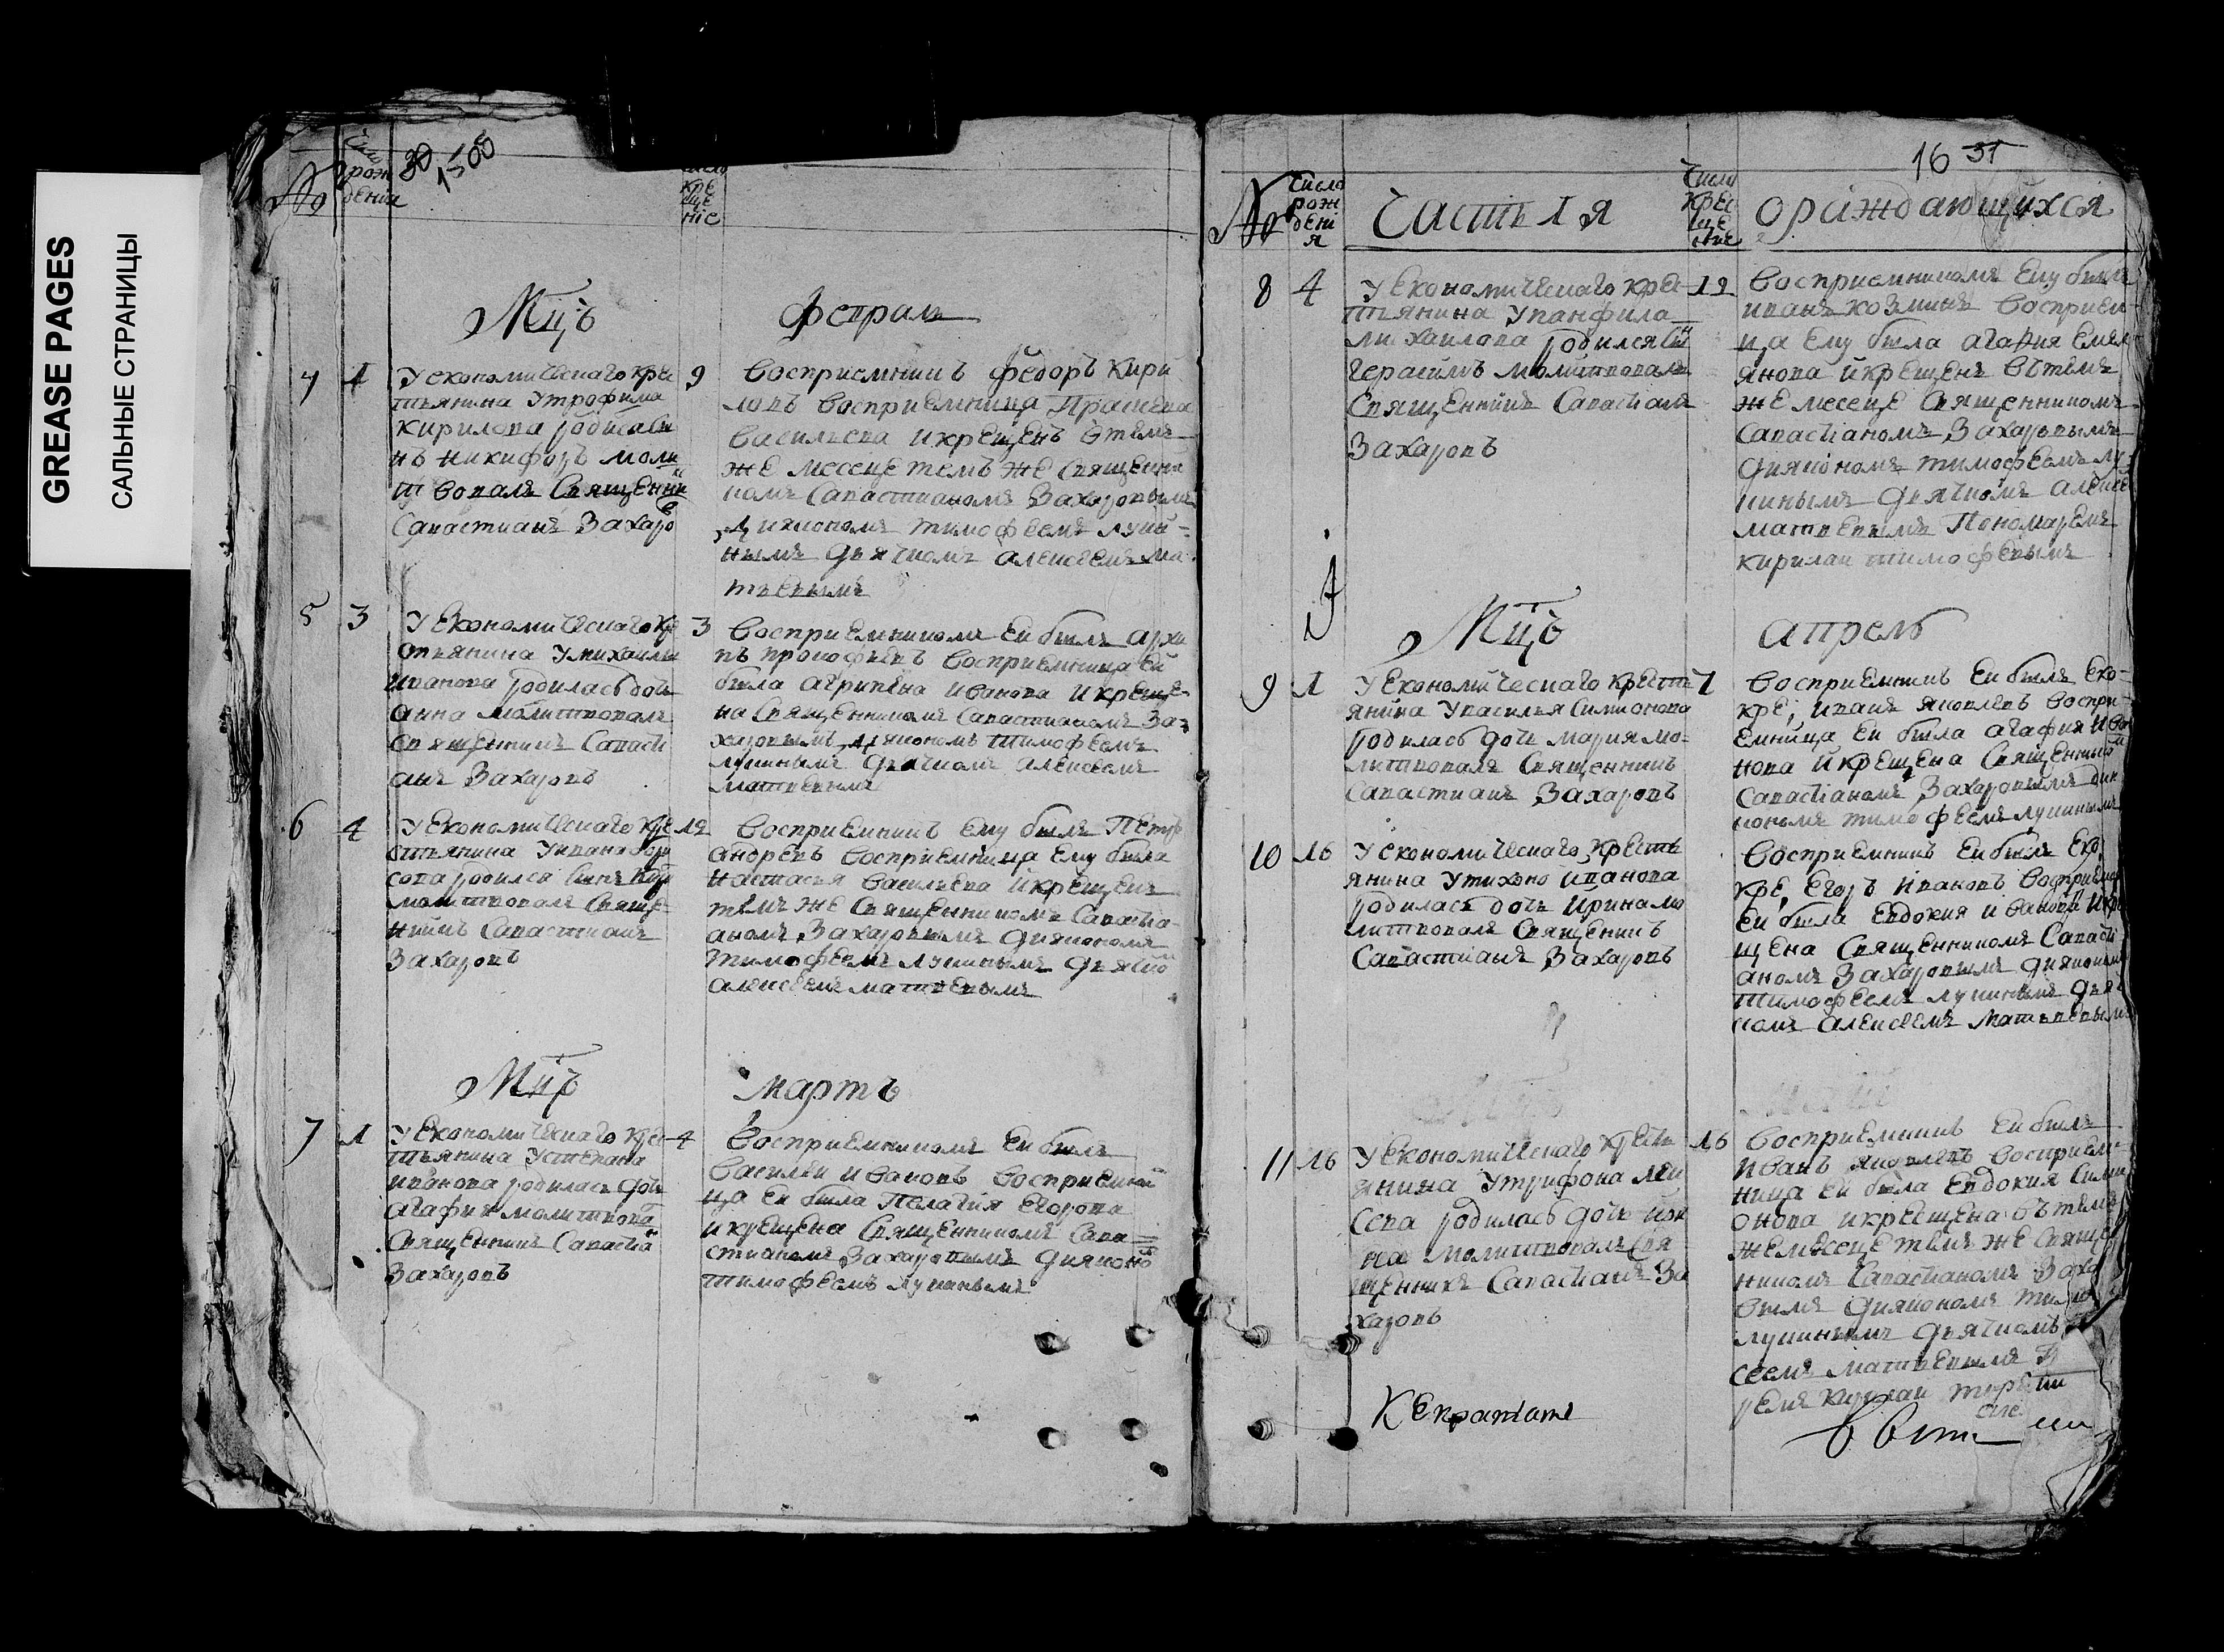 GREASE PAGES
САЛЬНЫЕ СТРАНИЦЫ
№
рож
дения
30
1500
кре
ще
ніе
Мцъ
февраль
4
1
У економическаго кре
стьянина У трофима
кирилова родился сы
нъ никифоръ моли
твовалъ Священни
Савастианъ Захаро
9
Восприемникъ федоръ Кири
ловъ восприемница Прасковя
Васильева и крещенъ втемъ
же месеце темъ же священни
комъ Савастианомъ Захаровымъ
диякономъ тимофеемъ луки
нымъ дьячкомъ алексеемъ ма
твевымъ
5
3
У Економическаго кре
стьянина У михаилы
Иванова родилась дочь
анна молитвовалъ
священникъ Савасти
анъ Захаровъ
3
Восприемникомъ Ей былъ архи
пъ прокофьевъ восприемница ей
была агрипена иванова и креще
на Священникомъ Савастианомъ За
харовымъ диякономъ тимофеемъ
лукинымъ дьячкомъ алексеемъ
матвевымъ
6
4
У Економическаго кре
стьянина У ивана бори
сова родился сынъ
молитвовалъ Свяще
нникъ Савастианъ
Захаровъ
Восприемникъ Ему былъ Петръ
андревъ восприемница Ему была
настасья васильева и крещенъ
темъ же Священникомъ Савасти
аномъ Захаровымъ диякономъ
тимофеемъ лукинымъ дьячко
алексеемъ матвевымъ
Мцъ
мартъ
7
1
У Економическаго крес
тьянина У степана
иванова родилась дочь
агафия молитвова
Священникъ Савастиа
Захаровъ
4
Восприемникомъ Ей былъ
Василеи ивановъ восприемни
ца ей была Пелагия Егорова
и крещена Священникомъ Сава
стианомъ Захаровымъ дияконо
тимофеемъ лукинымъ
16 31
№
число
рож
дені
я
Часть 1я
Число
крес
ще
ние
О раждающихся
8
4
У Економическаго крес
тьянина У панфила
михаилова родился сын
герасимъ молитвовалъ
Священникъ Савастианъ
Захаровъ
12
Восприемникомъ Ему былъ
иванъ козминъ восприем
ца Ему была агафия Емел
янова и крещенъ втемъ
же месеце Священникомъ
Савастианомъ Захаровымъ
диякономъ тимофеемъ лу
кинымъ дьячкомъ алексе
матвевымъ Пономаремъ
кирилаи тимофевымъ
Мцъ
апрель
9
1
У Економическаго кресть
янина У василья Симионова
родилась дочь мария мо
литвовалъ Священникъ
Савастианъ Захаровъ
1
Восприемникъ Ей былъ Еко
кре, иванъ яковлевъ воспри
емница Ей была агафия ива
нова и крещена Священнико
Савастианомъ Захаровымъ дия
кономъ тимофеемъ лукинымъ
10
16
У економическаго кресть
янина У тихоно иванова
родилась дочь ирина мо
литвовалъ Священикъ
Савастианъ Захаровъ
Восприемникъ Ей былъ Еко
кре, Егоръ ивановъ восприем
ей была Евдокия иванова и кре
щена Священникомъ Савасти
аномъ Захаровымъ дияконом
тимофеемъ лукинымъ дьяч
комъ алексеемъ матьвевымъ
11
16
У Економическаго кресть
янина У трифона
родилась дочь ири
на молитвовалъ Свя
щенникъ Савастианъ За
харовъ
16
Восприемникъ Ей былъ
иванъ яковлевъ восприем
ница ей была Евдокия Сими
онова и крещена вътемъ
же месеце темъ же Свяще
нникомъ Савастианомъ Заха
вымъ диякономъ тимо
лукинымъ дьячкомъ
сеемъ матвевымъ
ремъ кирилаи